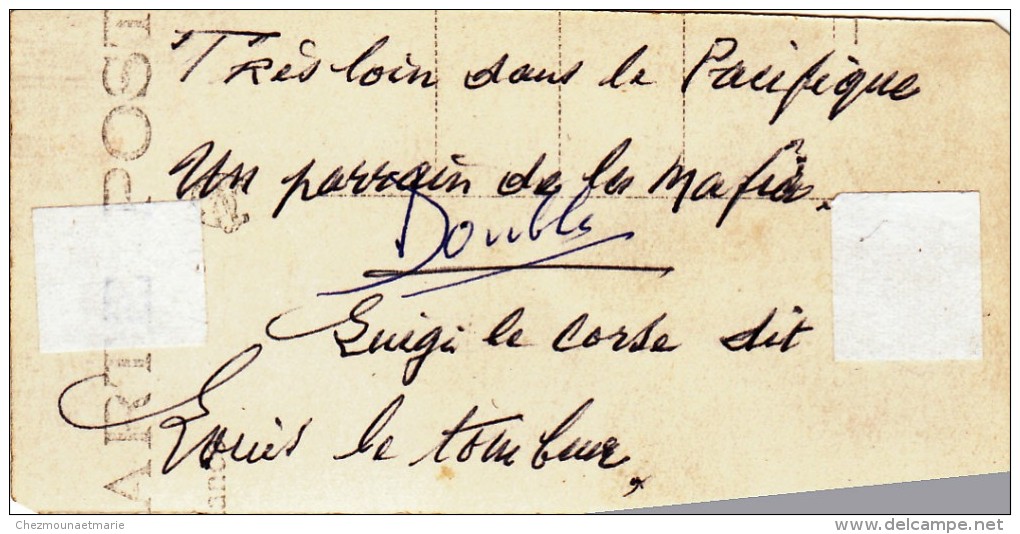 Très loin dans le Pacifique
Un parrain de la mafia.
Double
Luigi le Corse dit
Louis le tombeur
CARTE POSTALE
Chezmounaetmarie
#delcampe.net